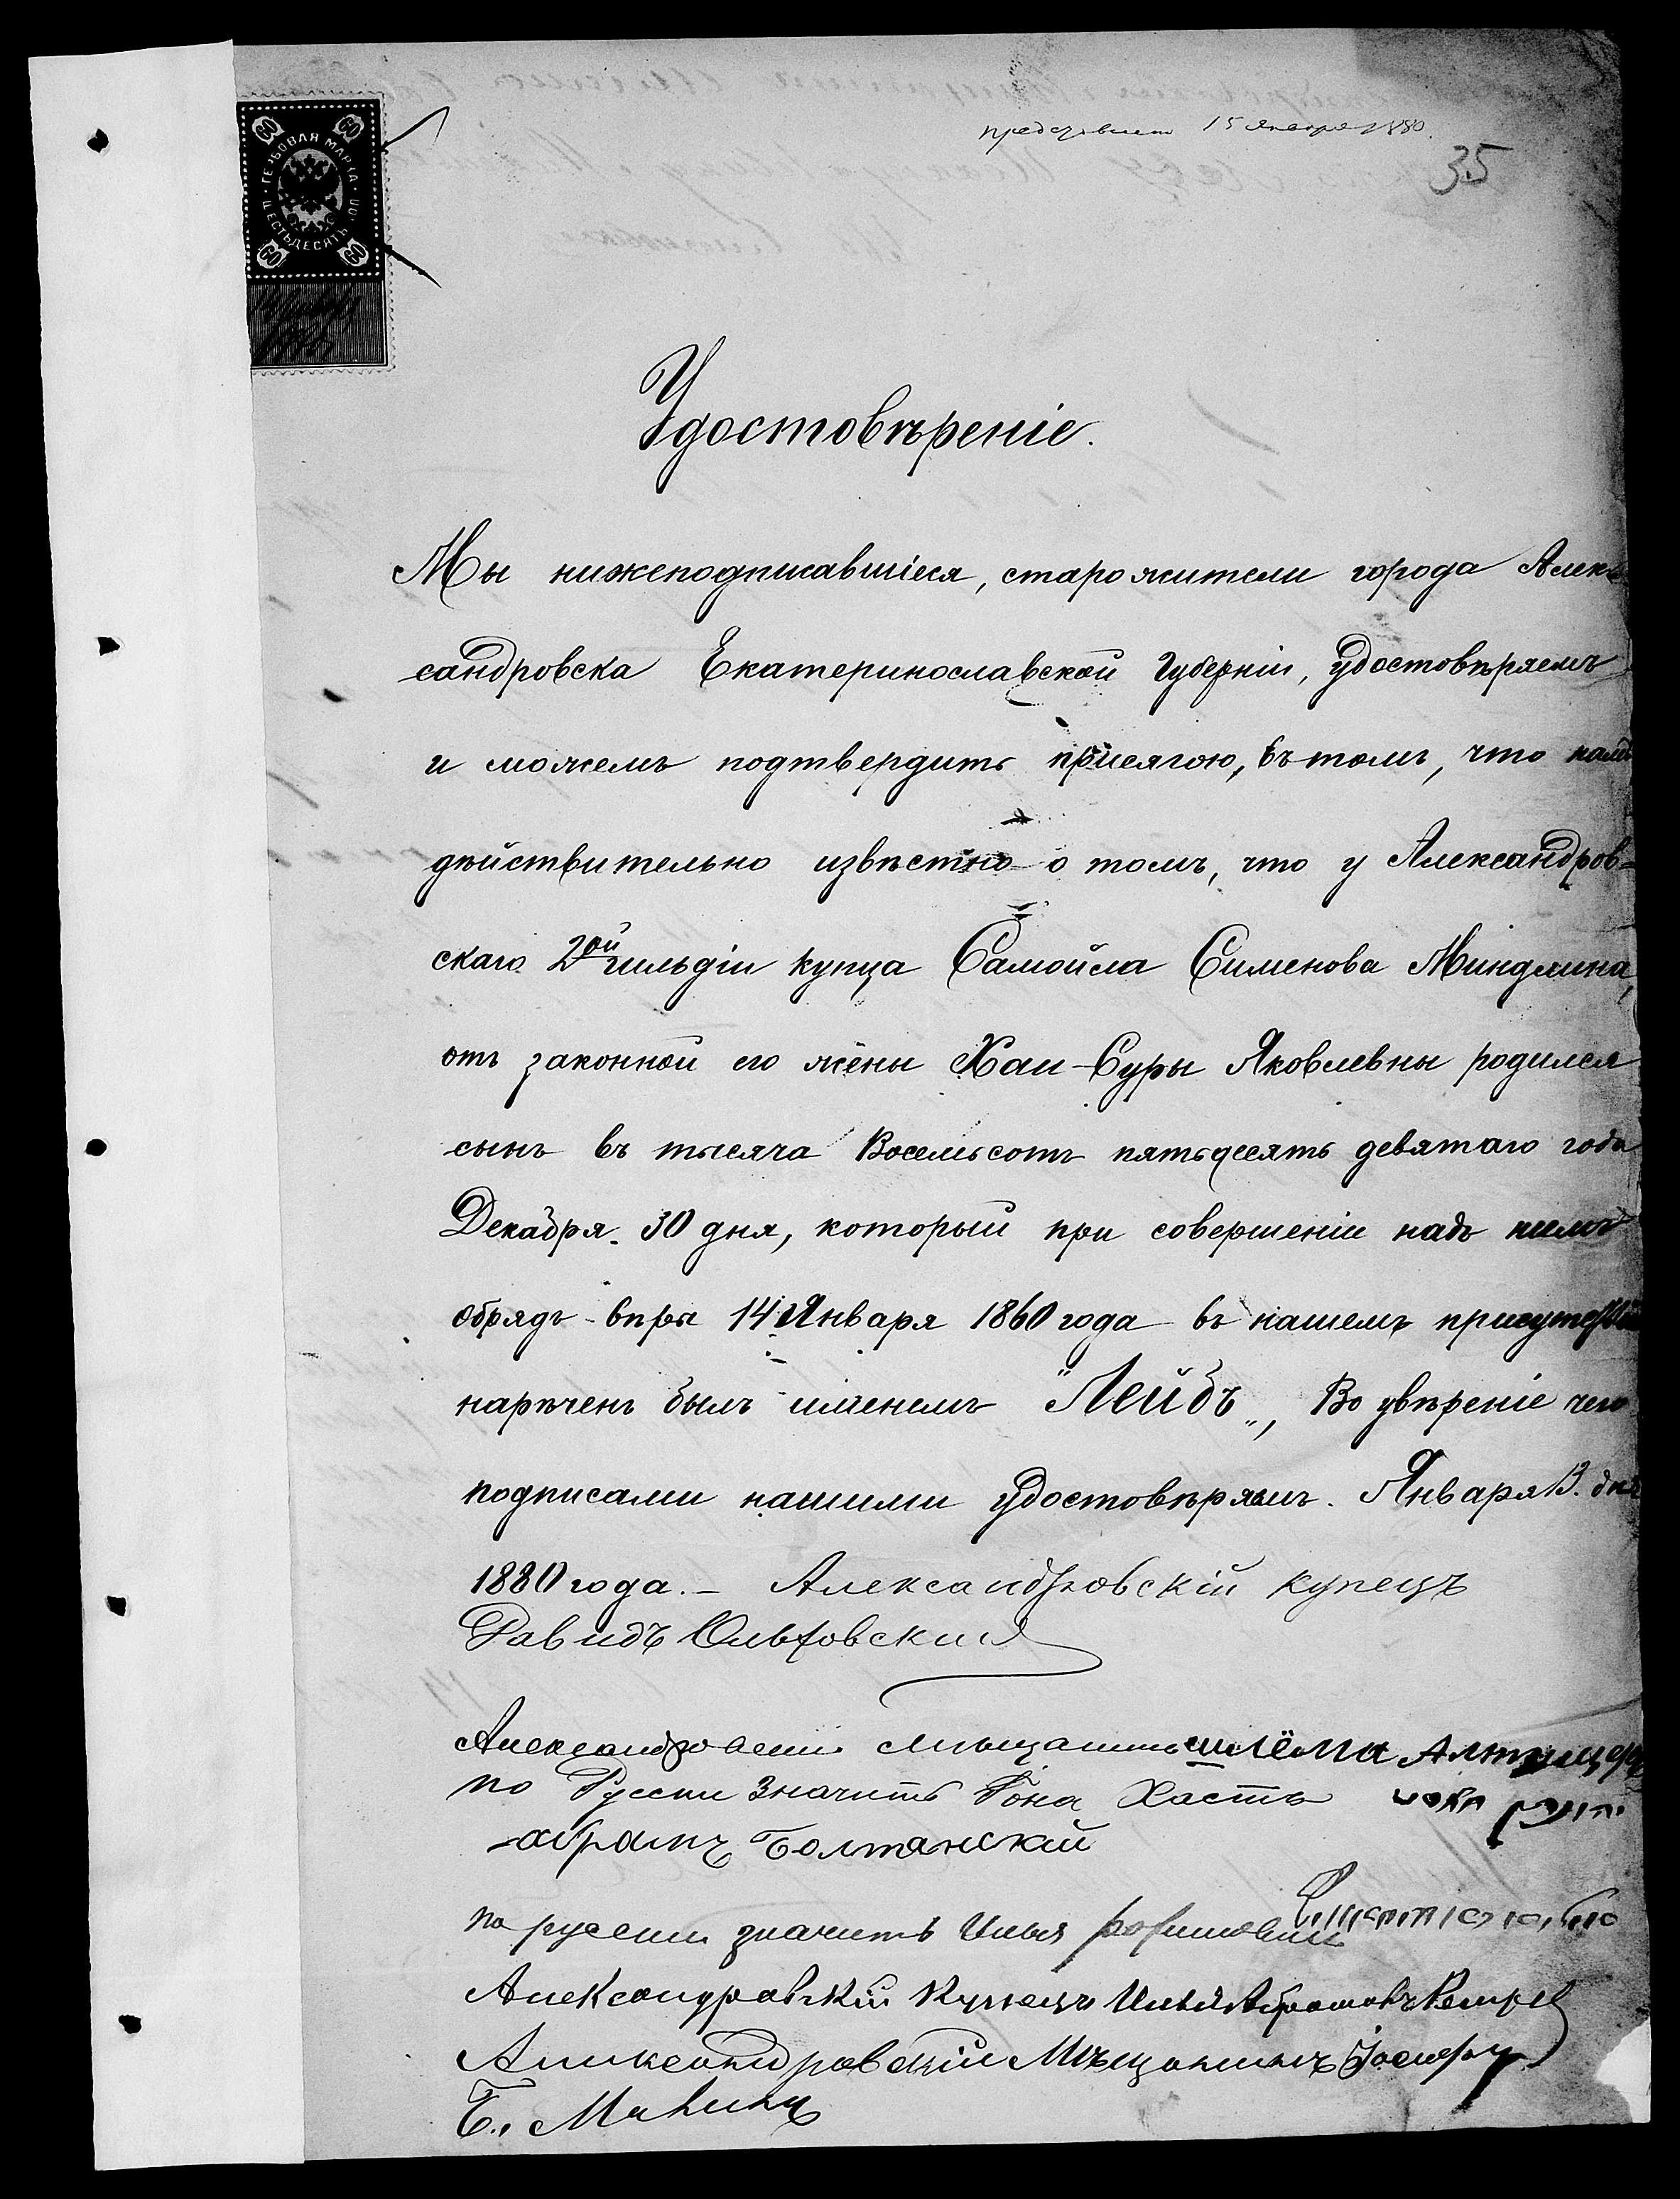 15 Января 1880.
35
60 60
ГЕРБОВАЯ МАРКА
ШЕСТЬДЕСЯТЪ
60 60
Удостовѣреніе.
Мы нижеподписавшіеся, старожители города Алек-
сандровска Екатеринославской Губерніи, удостовѣряемъ
и можемъ подтвердить присягою, въ томъ, что намъ
дѣйствительно извѣстно о томъ, что у Александров-
скаго 2ой гильдіи купца Самойла Сименова Миндлина,
отъ законной его жены Хаи-Суры Яковлевны родился
сынъ въ тысяча Восемьсотъ пятьдесятъ девятаго года
Декабря 30 дня, который при совершеніи надъ нимъ
обрядъ вѣры 14 Января 1860 года въ нашемъ присутствіи
нарѣченъ былъ именемъ "Лейбъ„, Во увѣреніе чего
подписами нашими удостовѣряемъ. Января 13. дня
1880 года. – Александровскій купецъ
Давидъ
Александровскій мѣщанинъ шлёма
по Русски значитъ Хастъ
абрамъ Болтянскій
по русски значитъ Илья
Александровскій Купецъ Илья Абрамовъ
Аликсандровскій Мѣщанинъ Іосифъ